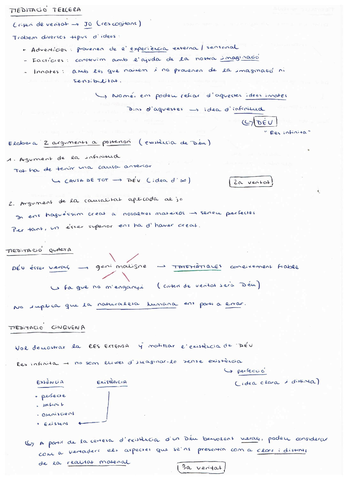 MEDITACIÓ TERCERA
Criteri de veritat → JO (res cogitans)
Trobem diversos tipus d'idees
• Adventícies: provenen de l'experiència externa / sensorial
• Factícies: construïm amb l'ajuda de la nostra imaginació
• Innates: amb les que naixem i no provenen de la imaginació ni
sensibilitat.
↳ Només em podeu refiar d'aquestes idees innates
Dins d'aquestes → idea d'infinitud
↳ DÉU
"Res infinita"
Elabora 2 arguments a posteriori (existència de Déu)
1. Argument de la infinitud
Tot ha de tenir una causa anterior
↳ CAUSA DE TOT → DÉU (idea d')
2a veritat
2. Argument de la causalitat aplicada al jo
Si ens haguéssim creat a nosaltres mateixos → seríem perfectes
Per tant, un ésser superior ens ha d'haver creat.
MEDITACIÓ QUARTA
DÉU ésser veraç → geni maligne → MATEMÀTIQUES coneixement fiable
↳ Fa que no m'enganyi (criteri de veritat serà Déu)
No implica que la naturalesa humana ens porti a errar.
MEDITACIÓ CINQUENA
Vol demostrar la RES EXTENSA i ratificar l'existència de DÉU
Res infinita → no som lliures d'imaginar-lo sense existència
↳ perfecció
(idea clara i distinta)
ESSÈNCIA EXISTÈNCIA
• perfecte
• infinit
• omniscient
• existent
↳ A partir de la certesa d'existència d'un Déu benvolent veraç, podem considerar
com a vertaders els aspectes que se'ns presenten com a clars i distints
de la realitat material.
3a veritat